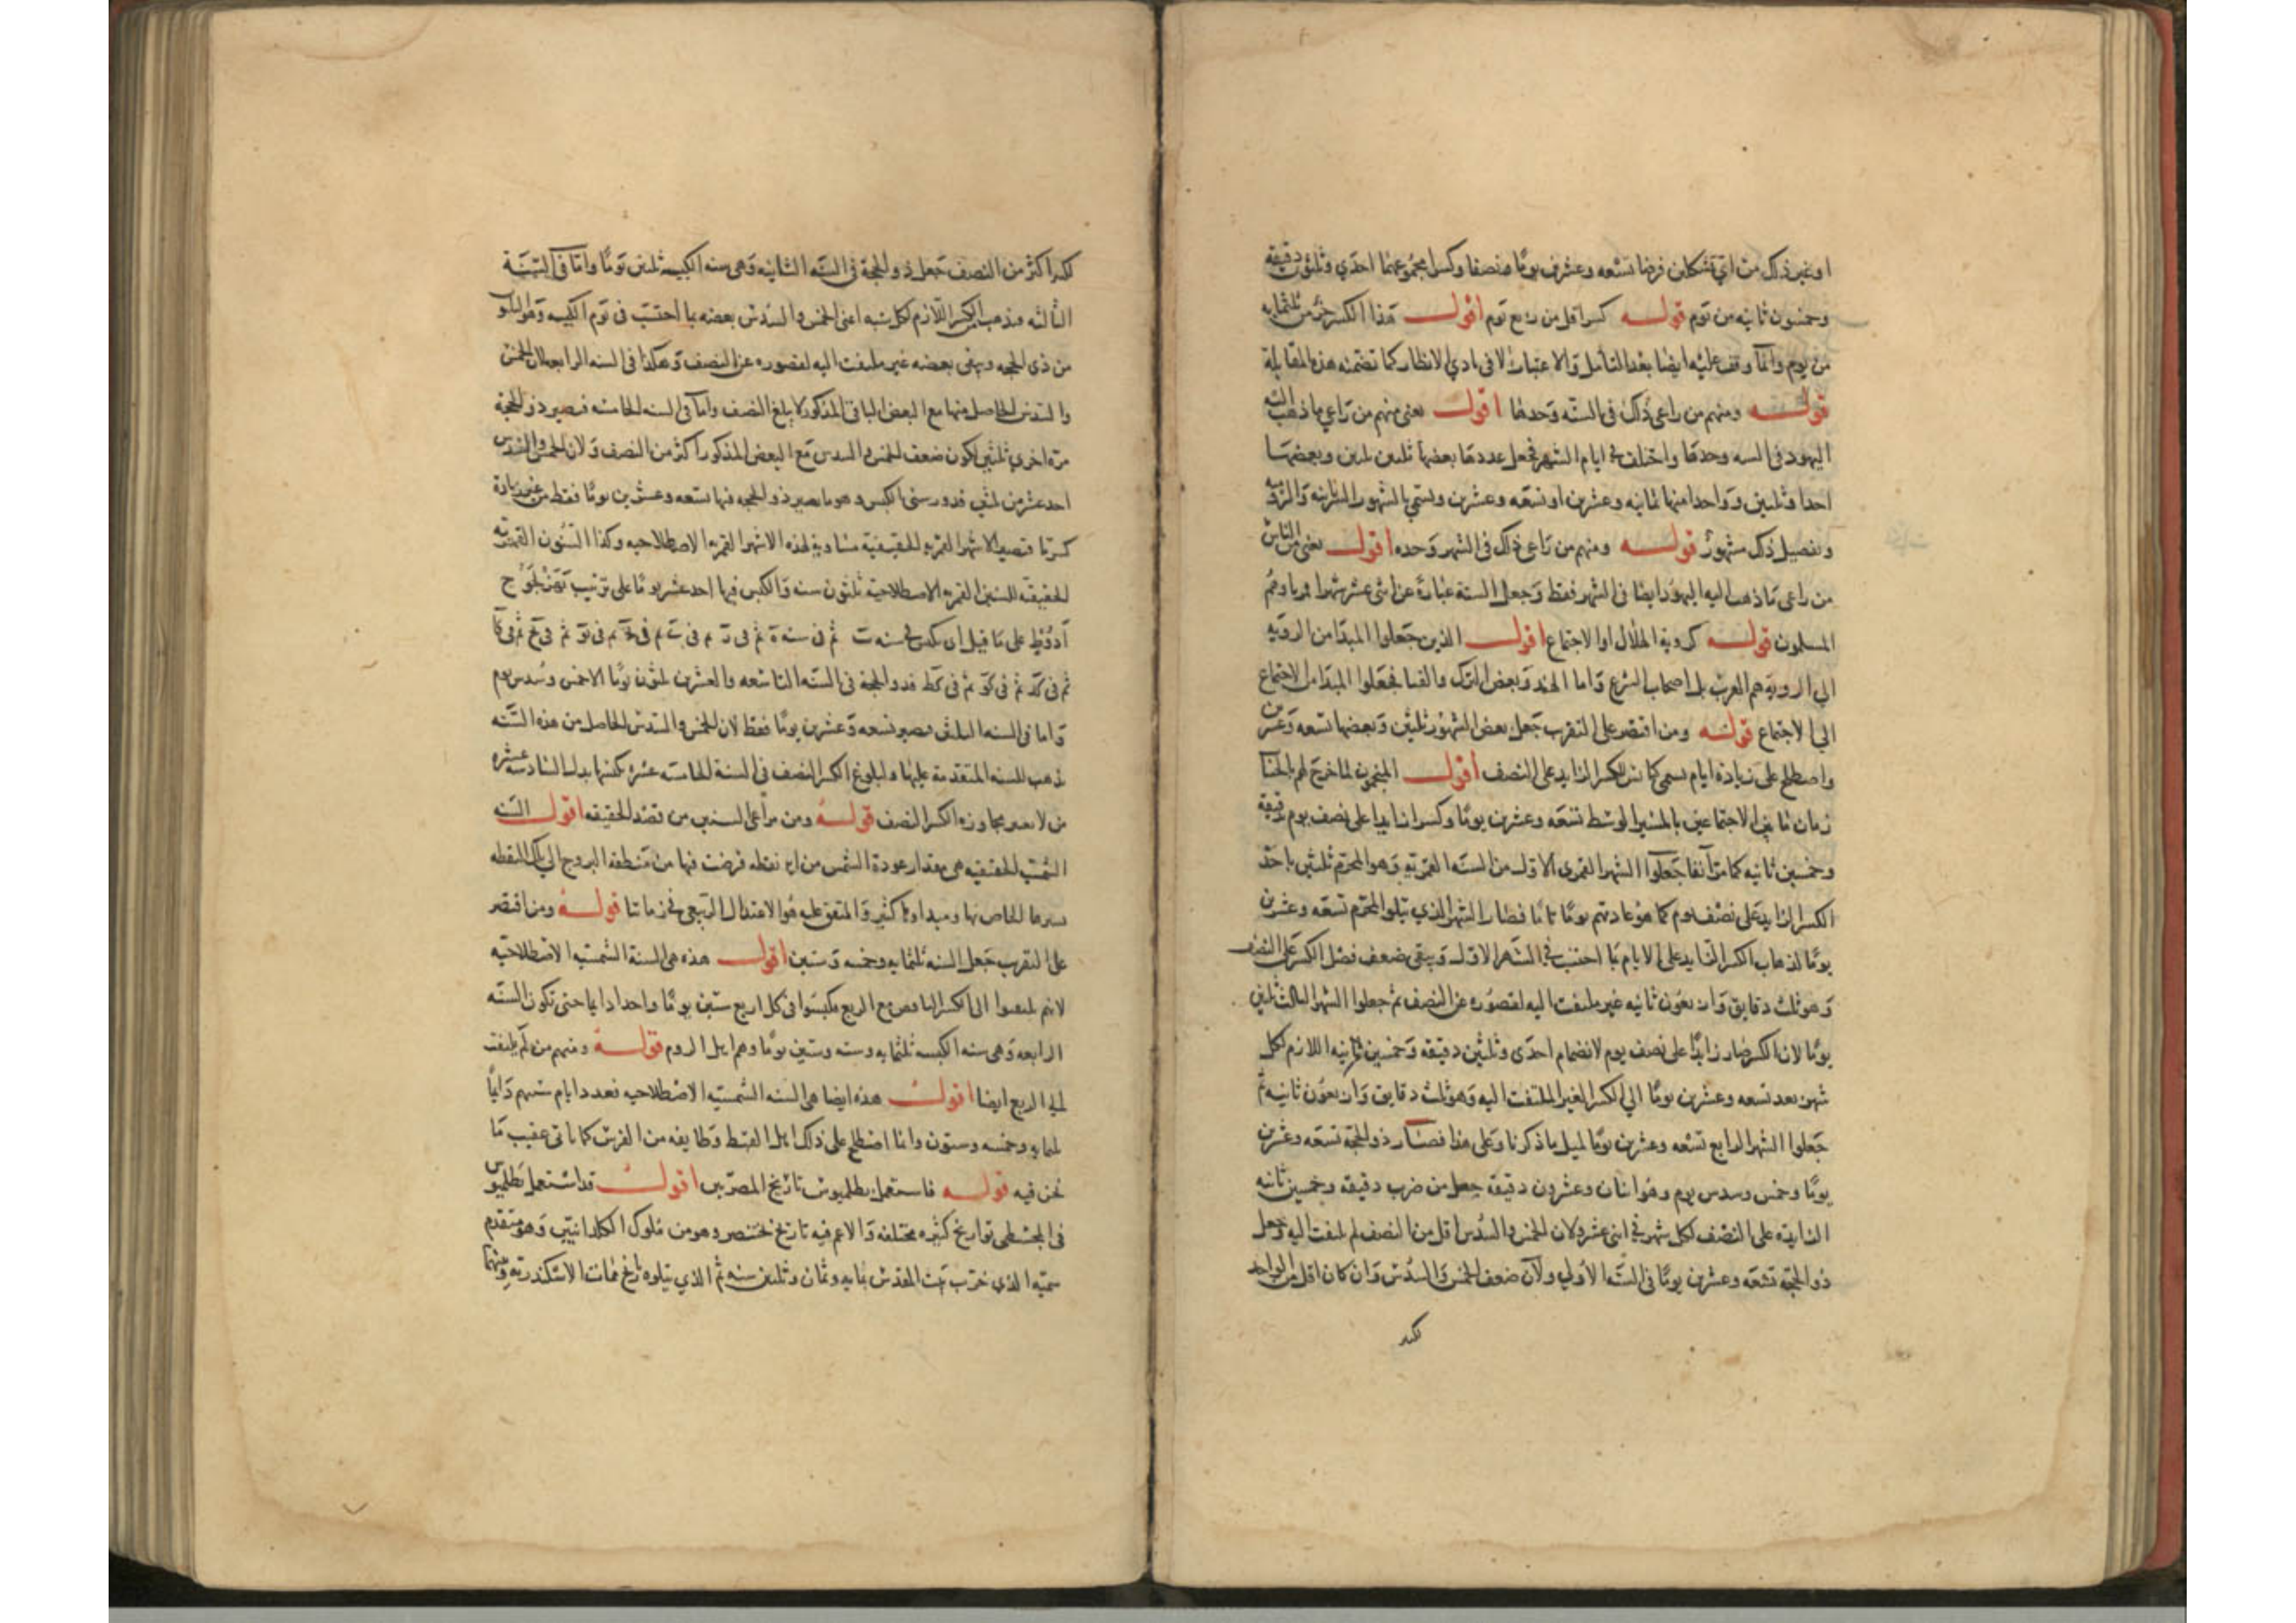 او غير ذلك من اي تشكلين فرضا تسعه وعشرين يوما ونصفا وكسرا مجموعهما احدى وثلثون دقيقة
وخمسون ثانيه من يوم قوله كسرا اقل من ربع يوم اقول هذا الكسر جزء من ثلثمايه
من يوم وانما وقف عليه ايضا بعد التأمل والاعتبارات لا في بادي الانظار كما تضمنه هذه المقابلة
قوله ومنهم من راعى ذلك في السنه وحدها اقول يعنى منهم من راعي ما ذهب اليه
اليهود في السنه وحدها واختلف في ايام الشهر فجعل عددها بعضها ثلثين ثلثين وبعضها
احدا وثلثين وواحدا منها ثمانيه وعشرين او تسعه وعشرين وتسمى بالشهور السريانيه والروميه
وتفصيل ذلك مشهور قوله ومنهم من راعى ذلك في الشهر وحده اقول يعنى من الناس
من راعى ما ذهب اليه اليهود ايضا في الشهر فقط وجعل السنة عبارة عن اثنى عشر شهرا قمريا وهم
المسلمون قوله كروية الهلال او الاجتماع اقول الذين جعلوا المبدا من الرويه
الي الرويه هم العرب بل اصحاب الشرع واما الهند وبعض الترك والقبا فجعلوا المبدا من الاجتماع
الي الاجتماع قوله ومن اقتصر على التقريب جعل بعض الشهور ثلثين وبعضها تسعه وعشرين
واصطلح على زيادة ايام تسمى كبائس للكسر الزايد على النصف اقول المنجمون لما خرج لهم بالحساب
زمان ما بين الاجتماعين بالمسير الوسط تسعه وعشرين يوما وكسرا زايدا على نصف يوم بدقيقة
وخمسين ثانيه كما مر آنفا جعلوا الشهر القمرى الاول من السنه القمريه وهو المحرم ثلثين باخذ
الكسر الزايد على نصف يوم كما هو عادتهم يوما تاما فصار الشهر الذي يتلو المحرم تسعه وعشرين
يوما لذهاب الكسر الزايد على الايام بما احتسب في الشهر الاول ويبقى ضعف فضل الكسر على النصف
وهو ثلث دقايق واربعون ثانيه غير ملتفت اليه لقصوره عن النصف ثم جعلوا الشهر الثالث ثلثين
يوما لان الكسر صار زايدا على نصف يوم لانضمام احدى وثلثين دقيقه وخمسين ثانيه اللازم لكل
شهر بعد تسعه وعشرين يوما الي الكسر الغير الملتفت اليه وهو ثلث دقايق واربعون ثانيه ثم
جعلوا الشهر الرابع تسعه وعشرين يوما لمثل ما ذكرنا وعلى هذا فصار ذو الحجة تسعه وعشرين
يوما وخمس وسدس يوم وهو اثنان وعشرون دقيقة جعل من ضرب دقيقه وخمسين ثانيه
الزايده على النصف لكل شهر في اثنى عشر ولان الخمس والسدس اقل من النصف لم يلتفت اليه وجعل
ذو الحجة تسعه وعشرين يوما في السنه الاولي ولان ضعف الخمس والسدس وان كان اقل من الواحد
لكنه
لكنه اكثر من النصف جعل ذو الحجة في السنه الثانيه وهى سنه الكبيسه ثلثين يوما واما في السنة
الثالثه فذهب الكسر اللازم لكل سنه اعنى الخمس والسدس بعضه بما احتسب في يوم الكبيسه وهو
من ذى الحجه وبقى بعضه غير ملتفت اليه لقصوره عن النصف وهكذا في السنه الرابعه لان الخمس
والسدس الحاصل منها مع البعض الباقى المذكور لا يبلغ النصف واما في السنه الخامسه فيصير ذو الحجة
مرة اخري ثلثين لكون ضعف الخمس والسدس مع البعض المذكور اكثر من النصف ولان الخمس والسدس
احد عشر من ثلثين فدور سنى الكبس وهو ما يصير ذو الحجه فيها تسعه وعشرين يوما فقط من غير زيادة
كسر ما فتصير الاشهر القمريه الحقيقية مساوية لهذه الاشهر القمريه الاصطلاحيه وكذا السنون القمريه
الحقيقيه للسنين القمريه الاصطلاحية ثلثون سنه والكبس فيها احد عشر يوما على ترتيب
ادوط على ما قيل اى يكبس في سنه ب ثم في سنه ه ثم في ز ثم في ي ثم في يج ثم في يو ثم في يح ثم في كا
ثم في كد ثم في كو ثم في كط فذو الحجة في السنه التاسعه والعشرين ثلثون يوما الا خمس وسدس يوم
واما في السنه الثلثين فيصير تسعه وعشرين يوما فقط لان الخمس والسدس الحاصل من هذه السنه
ذهب للسنه المتقدمة عليها ولبلوغ الكسر النصف في السنة الخامسه عشره يكبسها بدل السادسه عشره
من لا يعتبر مجاوزه الكسر النصف قوله ومن مراعى السنين من قصد الحقيقه اقول السنه
الشمسيه الحقيقيه هى مقدار عودة الشمس من اى نقطه فرضت فيها من منطقه البروج الي تلك النقطه
بسيرها الخاص بها ومبداؤها كثير والمتفق عليه هو الاعتدال الربيعى في زماننا قوله ومن اقتصر
على التقريب جعل السنه ثلثمايه وخمسه وستين اقول هذه هى السنة الشمسيه الاصطلاحيه
لانهم لم يلتفتوا الى الكسر الناقص مع الربع فكبسوا في كل اربع سنين يوما واحدا دايما حتى تكون السنه
الرابعه وهى سنه الكبيسه ثلثمايه وسته وستين يوما وهم اهل الروم قوله ومنهم من لم يلتفت
الى الربع ايضا اقول هذه ايضا هى السنه الشمسيه الاصطلاحيه فعدد ايام سنيهم دايما
ثلثمايه وخمسه وستون وانما اصطلح على ذلك اهل القبط وطايفه من الفرس كما ياتى عقيب ما
نحن فيه قوله فاستعمل بطلميوس تاريخ المصريين اقول قد استعمل بطلميوس
في المجسطى تواريخ كثيره مختلفه والاعم فيه تاريخ بختنصر وهو من ملوك الكلدانيين وهو متقدم
سميه الذي خرب بيت المقدس بمايه وثمان وثلثين سنه ثم الذي يتلوه تاريخ ممات الاسكندر